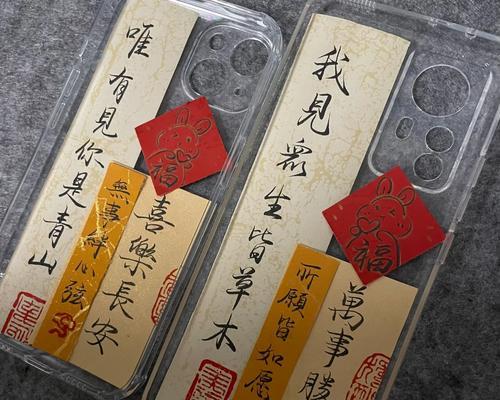 唯有見你是青山
無事絆心弦
喜樂長安
福
我見眾生皆草木
所願皆如愿
萬事勝
福